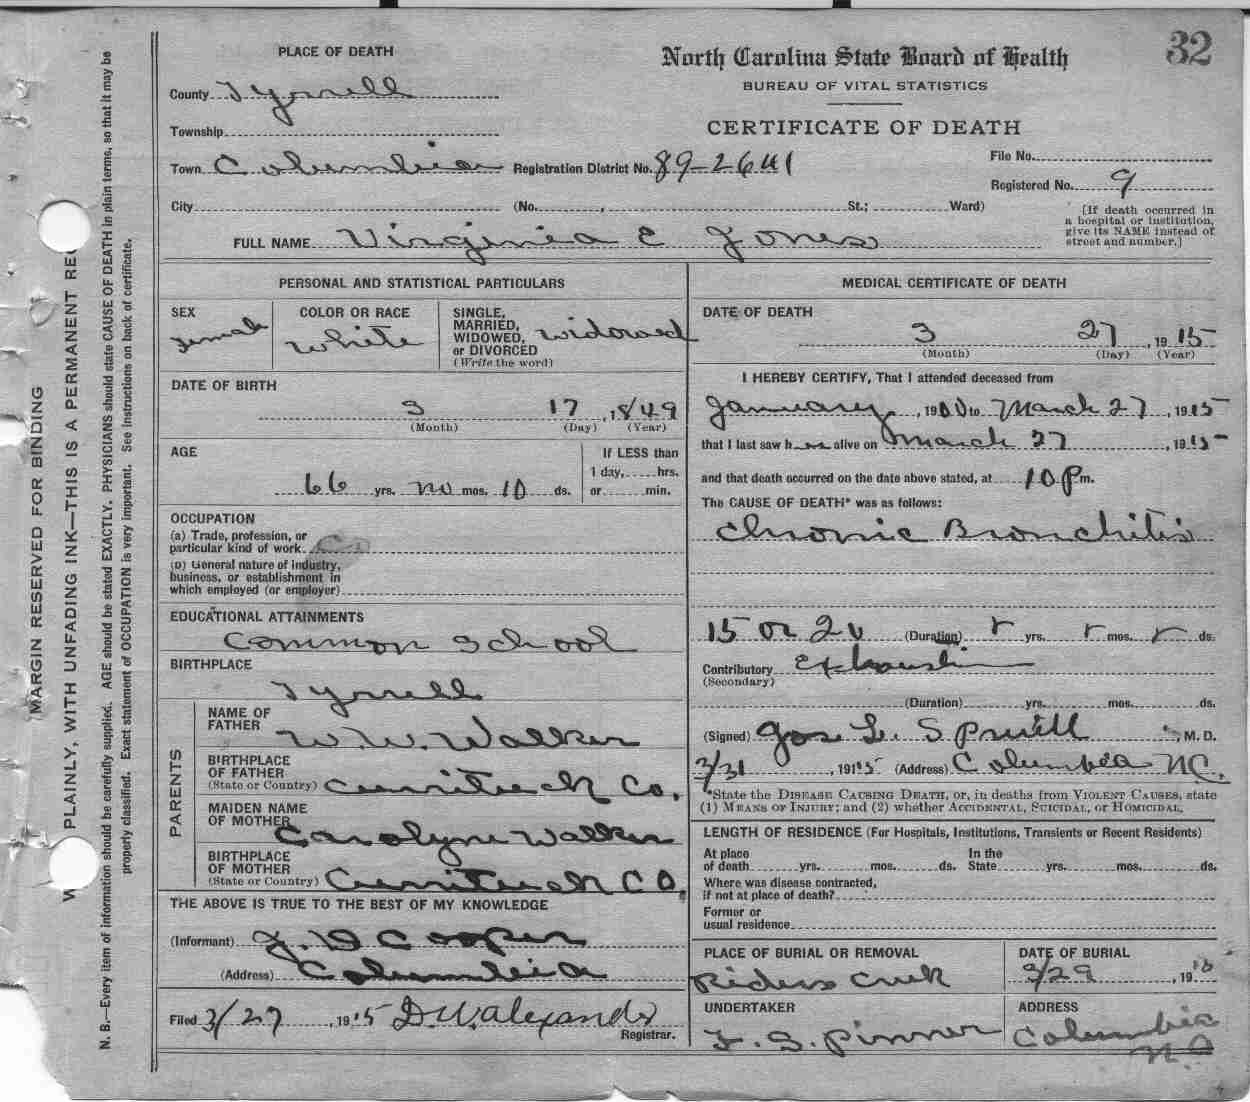 32
PLACE OF DEATH
County Tyrrell
Township
Town Columbia
City
North Carolina State Board of Health
BUREAU OF VITAL STATISTICS
CERTIFICATE OF DEATH
Registration District No.
File No.
Registered No. 9
(No. , St.; Ward)
[If death occurred in
a hospital or institution,
give its NAME instead of
street and number.]
FULL NAME Virginia E Jones
PERSONAL AND STATISTICAL PARTICULARS
SEX
female
COLOR OR RACE
White
SINGLE,
MARRIED,
WIDOWED,
or DIVORCED
(Write the word)
widowed
DATE OF BIRTH
3 17 , 1849
(Month) (Day) (Year)
AGE
66 yrs. no mos. 10 ds.
If LESS than
1 day, hrs.
or min.
OCCUPATION
(a) Trade, profession, or
particular kind of work
(b) General nature of industry,
business, or establishment in
which employed (or employer)
EDUCATIONAL ATTAINMENTS
Common School
BIRTHPLACE
Tyrrell
PARENTS
NAME OF
FATHER
W. W. Walker
BIRTHPLACE
OF FATHER
(State or Country) Currituck Co.
MAIDEN NAME
OF MOTHER
Carolyne Walker
BIRTHPLACE
OF MOTHER
(State or Country) Currituck CO.
THE ABOVE IS TRUE TO THE BEST OF MY KNOWLEDGE
(Informant) Cooper
(Address) Columbia
Filed 3/27 , 1915 D. W. Alexander
Registrar.
MEDICAL CERTIFICATE OF DEATH
DATE OF DEATH
3 27 , 1915
(Month) (Day) (Year)
I HEREBY CERTIFY, That I attended deceased from
January , 1900 to March 27 , 1915
that I last saw her alive on March 27 , 1915
and that death occurred on the date above stated, at 10 Pm.
The CAUSE OF DEATH* was as follows:
Chronic Bronchitis
15 or 20 (Duration) yrs. mos. ds.
Contributory Exhaustion
(Secondary)
(Duration) yrs. mos. ds.
(Signed) Jos. L. Spruill , M. D.
3/31 , 1915 (Address) Columbia NC.
*State the DISEASE CAUSING DEATH, or, in deaths from VIOLENT CAUSES, state
(1) MEANS OF INJURY; and (2) whether ACCIDENTAL, SUICIDAL, or HOMICIDAL.
LENGTH OF RESIDENCE (For Hospitals, Institutions, Transients or Recent Residents)
At place
of death yrs. mos. ds.
In the
State yrs. mos. ds.
Where was disease contracted,
if not at place of death?
Former or
usual residence
PLACE OF BURIAL OR REMOVAL
Riders Creek
DATE OF BURIAL
3/29 , 19
UNDERTAKER
Pinner
ADDRESS
Columbia
N C
MARGIN RESERVED FOR BINDING
PLAINLY, WITH UNFADING INK—THIS IS A PERMANENT
N. B.—Every item of information should be carefully supplied. AGE should be stated EXACTLY. PHYSICIANS should state CAUSE OF DEATH in plain terms, so that it may be
properly classified. Exact statement of OCCUPATION is very important. See instructions on back of certificate.